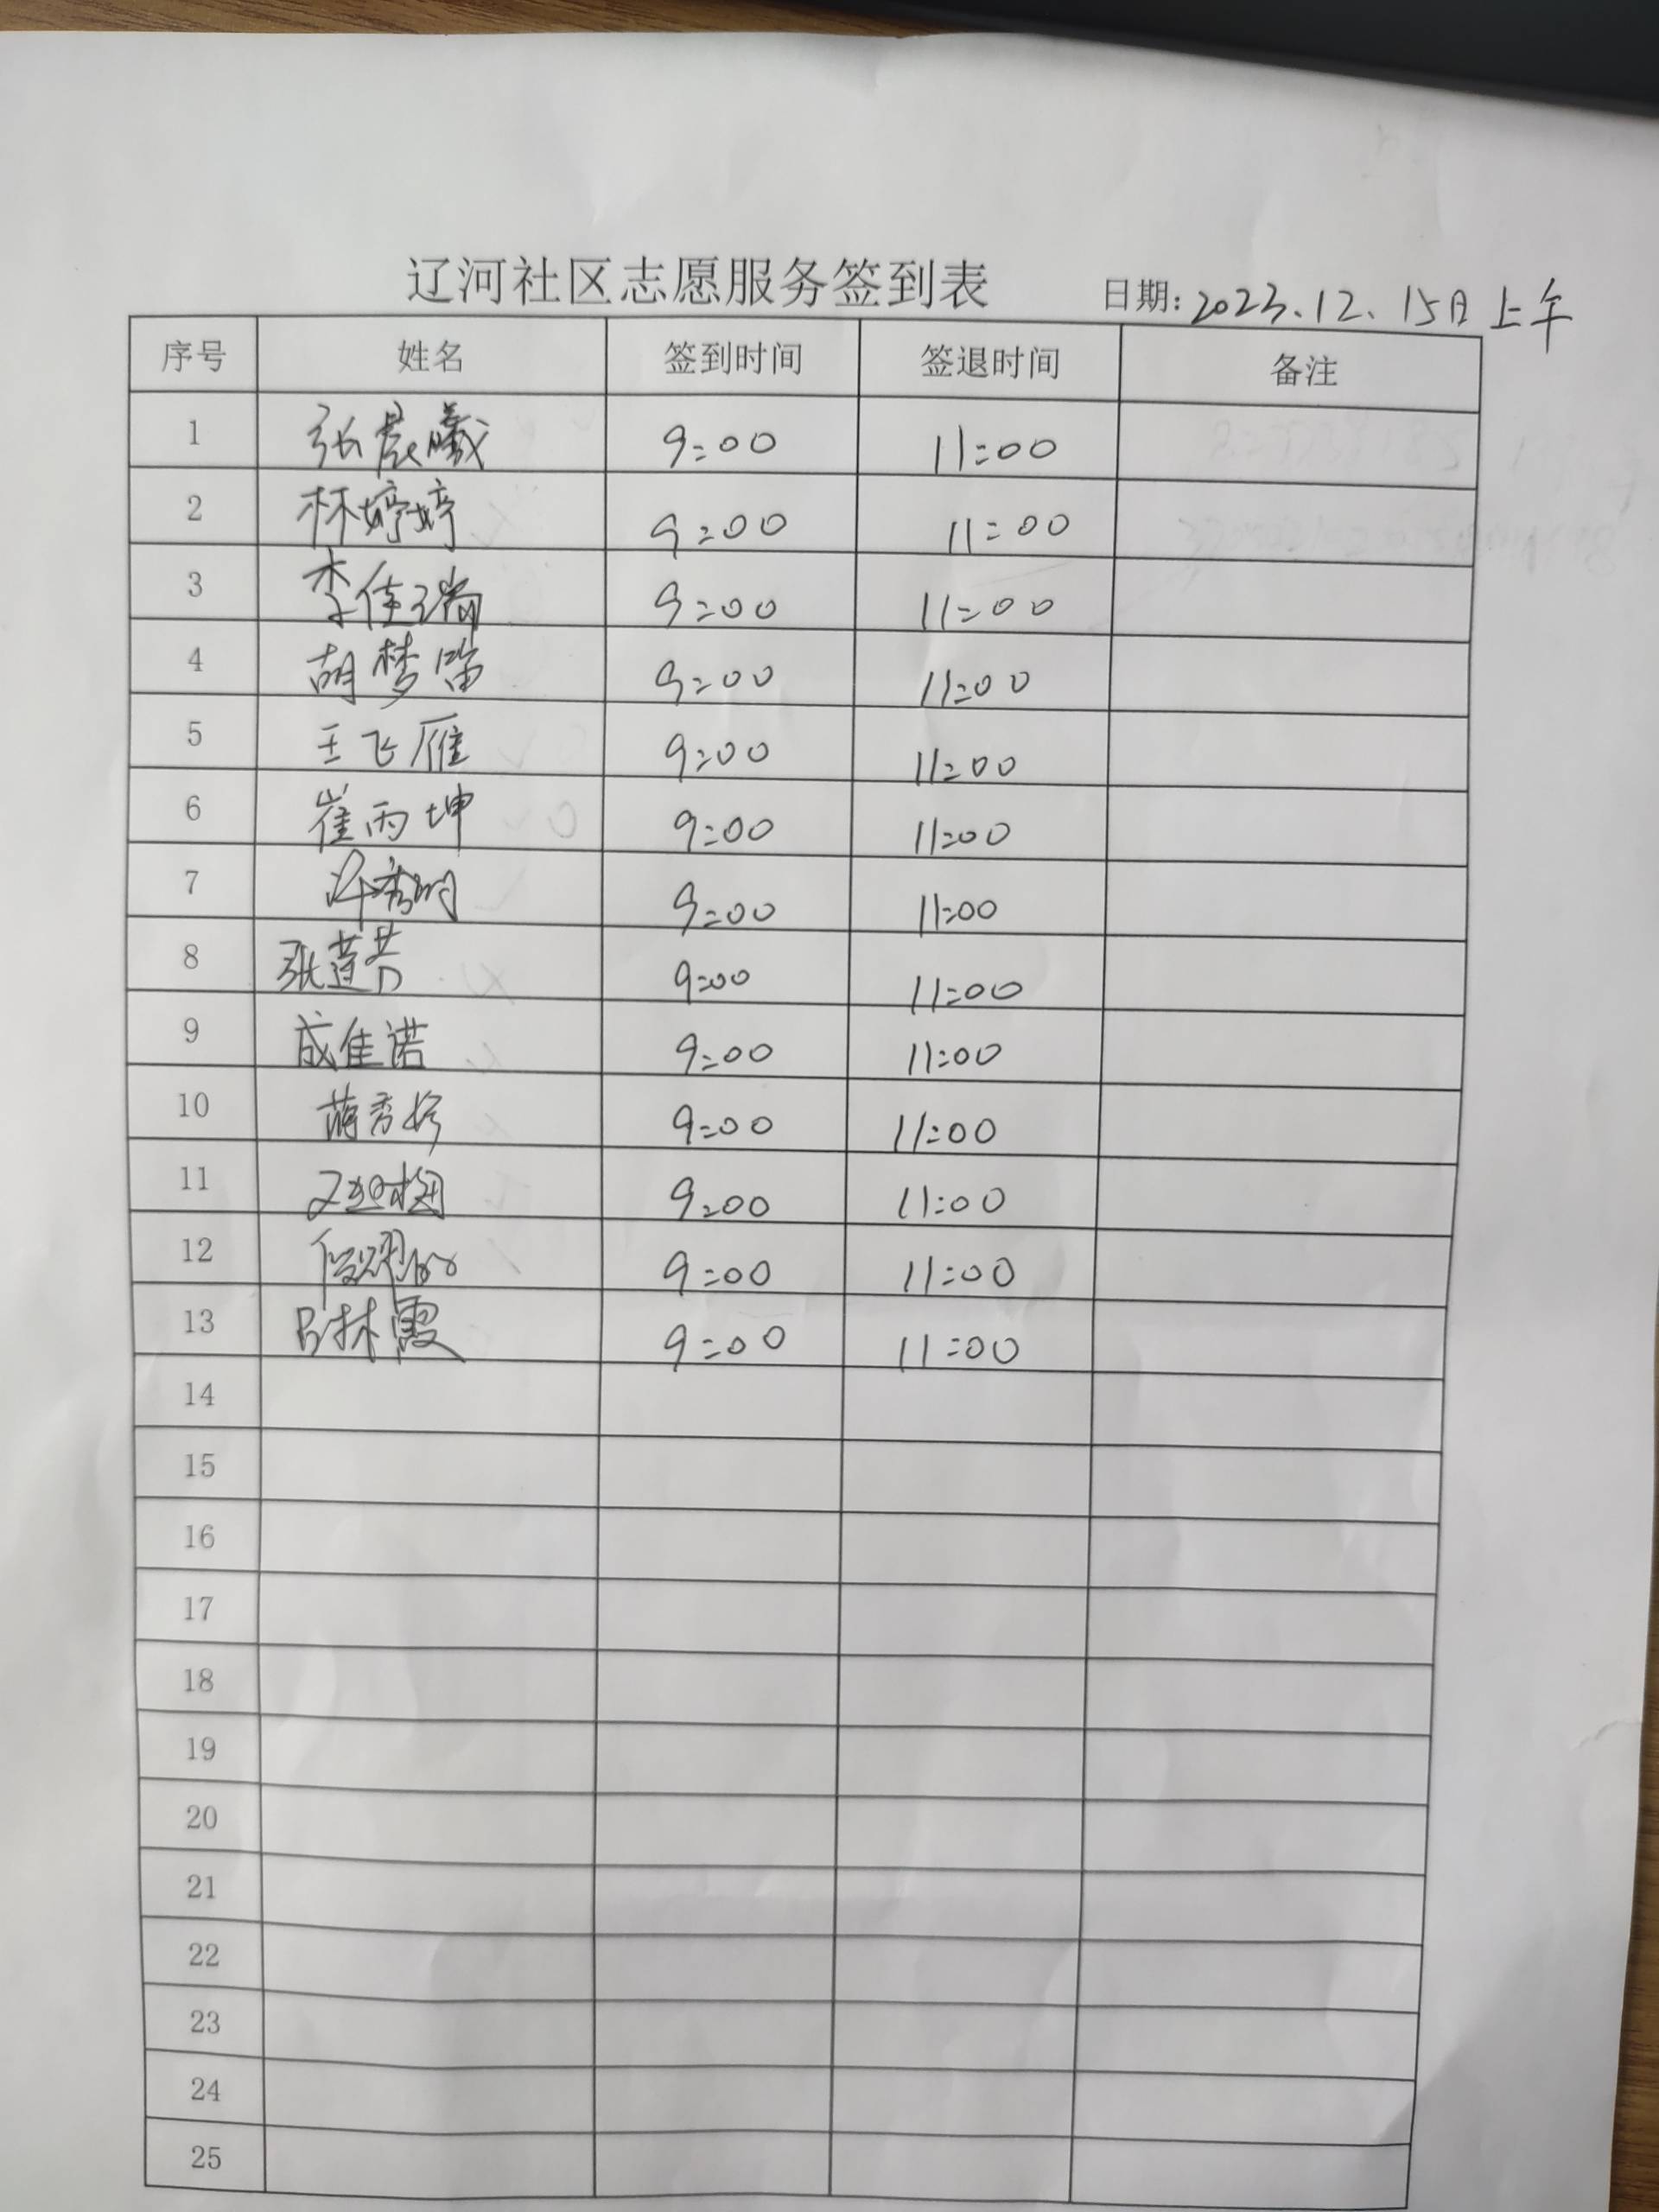 辽河社区志愿服务签到表 日期: 2023.12.15日上午
序号 姓名 签到时间 签退时间 备注
1 张晨曦 9:00 11:00
2 林婷婷 9:00 11:00
3 李佳瑞 9:00 11:00
4 胡梦笛 9:00 11:00
5 王飞雁 9:00 11:00
6 崔丙坤 9:00 11:00
7 9:00 11:00
8 9:00 11:00
9 成佳诺 9:00 11:00
10 蒋秀珍 9:00 11:00
11 9:00 11:00
12 9:00 11:00
13 吕林霞 9:00 11:00
14
15
16
17
18
19
20
21
22
23
24
25